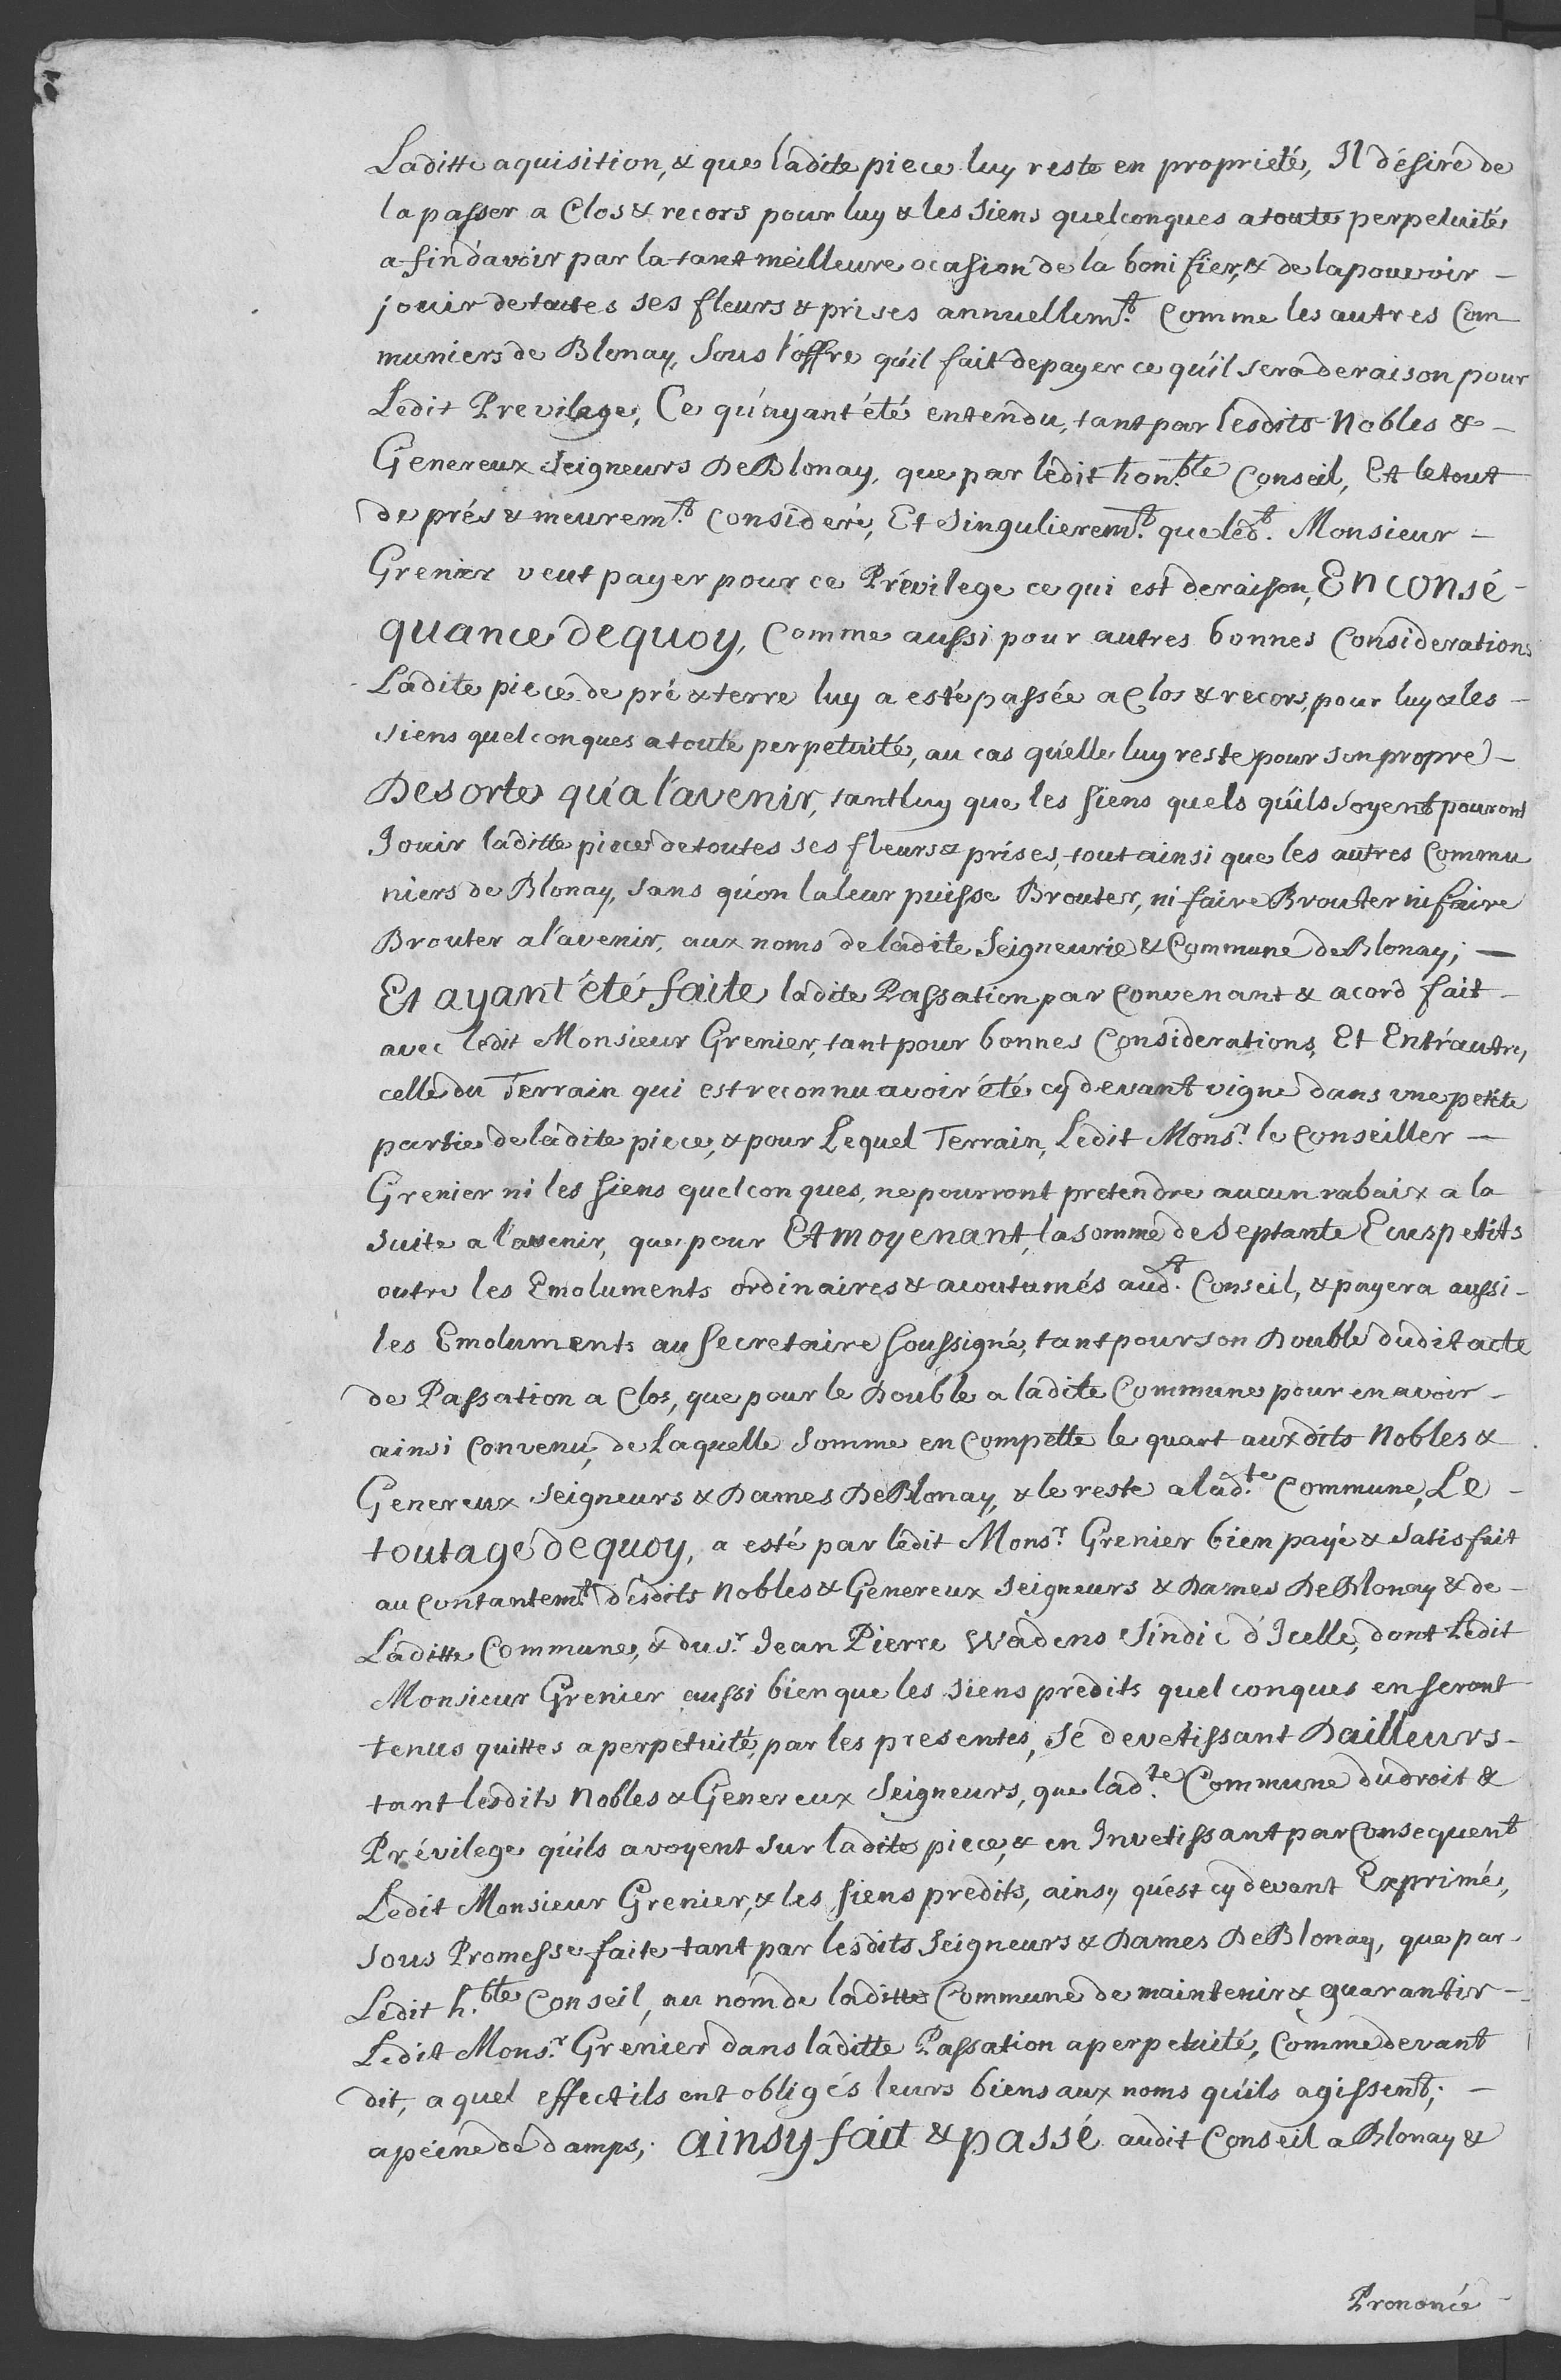 Laditte aquisition, & que ladite piece luy reste en proprieté, Il désire de
la passer a Clos & recors pour luy & les siens quelconques a toute perpetuité
a fin d'avoir par la tant meilleure ocasion de la bonifier, & de la pouvoir –
jouir de toutes ses fleurs & prises annuellem.t Comme les autres Com
muniers de Blonay, Sous l'offre qu'il fait de payer ce qu'il sera de raison pour
Ledit Previlege, Ce qu'ayant été entendu, tant par lesdits Nobles & –
Genereux Seigneurs De Blonay, que par ledit hon.ble Conseil, Et le tout
de prés & meurem.t Consideré, Et Singulierem.t que led.t Monsieur –
Grenier veut payer pour ce Prévilege ce qui est de raison, En consé-
quance de quoy, Comme aussi pour autres bonnes Considerations
Ladite piece de pré & terre luy a esté passée a Clos & recors, pour luy & les –
siens quelconques a toute perpetuité, au cas qu'elle luy reste pour son propre –
De sorte qu'a l'avenir, tant luy que les siens quels qu'ils soyent pouront
Jouir laditte piece de toutes ses fleurs & prises, tout ainsi que les autres Commu
niers de Blonay, sans qu'on la leur puisse Brouter, ni faire Brouter ni faire
Brouter a l'avenir, aux noms de ladite Seigneurie & Commune de Blonay; –
Et ayant été faite ladite Passation par Convenant & acord fait –
avec ledit Monsieur Grenier, tant pour bonnes Considerations, Et Entr'autre,
celle du Terrain qui est reconnu avoir été cy devant vigne dans une petite
partie de ladite piece, & pour Lequel Terrain, Ledit Mons.r le Conseiller –
Grenier ni les siens quelconques, ne pourront pretendre aucun rabaix a la
suite a l'avenir, que pour Et moyenant la somme de Septante Ecus petits
outre les Emoluments ordinaires & acoutumés aud.t Conseil, & payera aussi –
les Emoluments au Secretaire soussigné, tant pour son Double dudit acte
de Passation a Clos, que pour le Double a ladite Commune pour en avoir –
ainsi Convenu, de Laquelle Somme en Compette le quart aux dits Nobles &
Genereux Seigneurs & Dames De Blonay, & le reste a lad.te Commune, Le –
toutage de quoy, a esté par ledit Mons.r Grenier bien payé & satisfait
au Contantem.t desdits Nobles & Genereux Seigneurs & Dames De Blonay & de –
Laditte Commune, & du s.r Jean Pierre Wadens Sindic d'Icelle, dont Ledit
Monsieur Grenier aussi bien que les siens predits quelconques en seront
tenus quittes a perpetuité, par les presentes, Se devetissant Dailleurs –
tant lesdits Nobles & Genereux Seigneurs, que lad.te Commune du droit &
Prévilege qu'ils avoyent sur ladite piece, & en Invetissant par Consequent
Ledit Monsieur Grenier, & les siens predits, ainsy qu'est cy devant Exprimé,
sous Promesse faite tant par lesdits Seigneurs & Dames De Blonay, que par –
Ledit h.ble Conseil, au nom de laditte Commune de maintenir & guarantir –
Ledit Mons.r Grenier dans laditte Passation a perpetuité, Comme devant
dit, a quel effect ils ont obligés leurs biens aux noms qu'ils agissent; –
a peine de damps; ainsy fait & passé audit Conseil a Blonay &
Prononcé